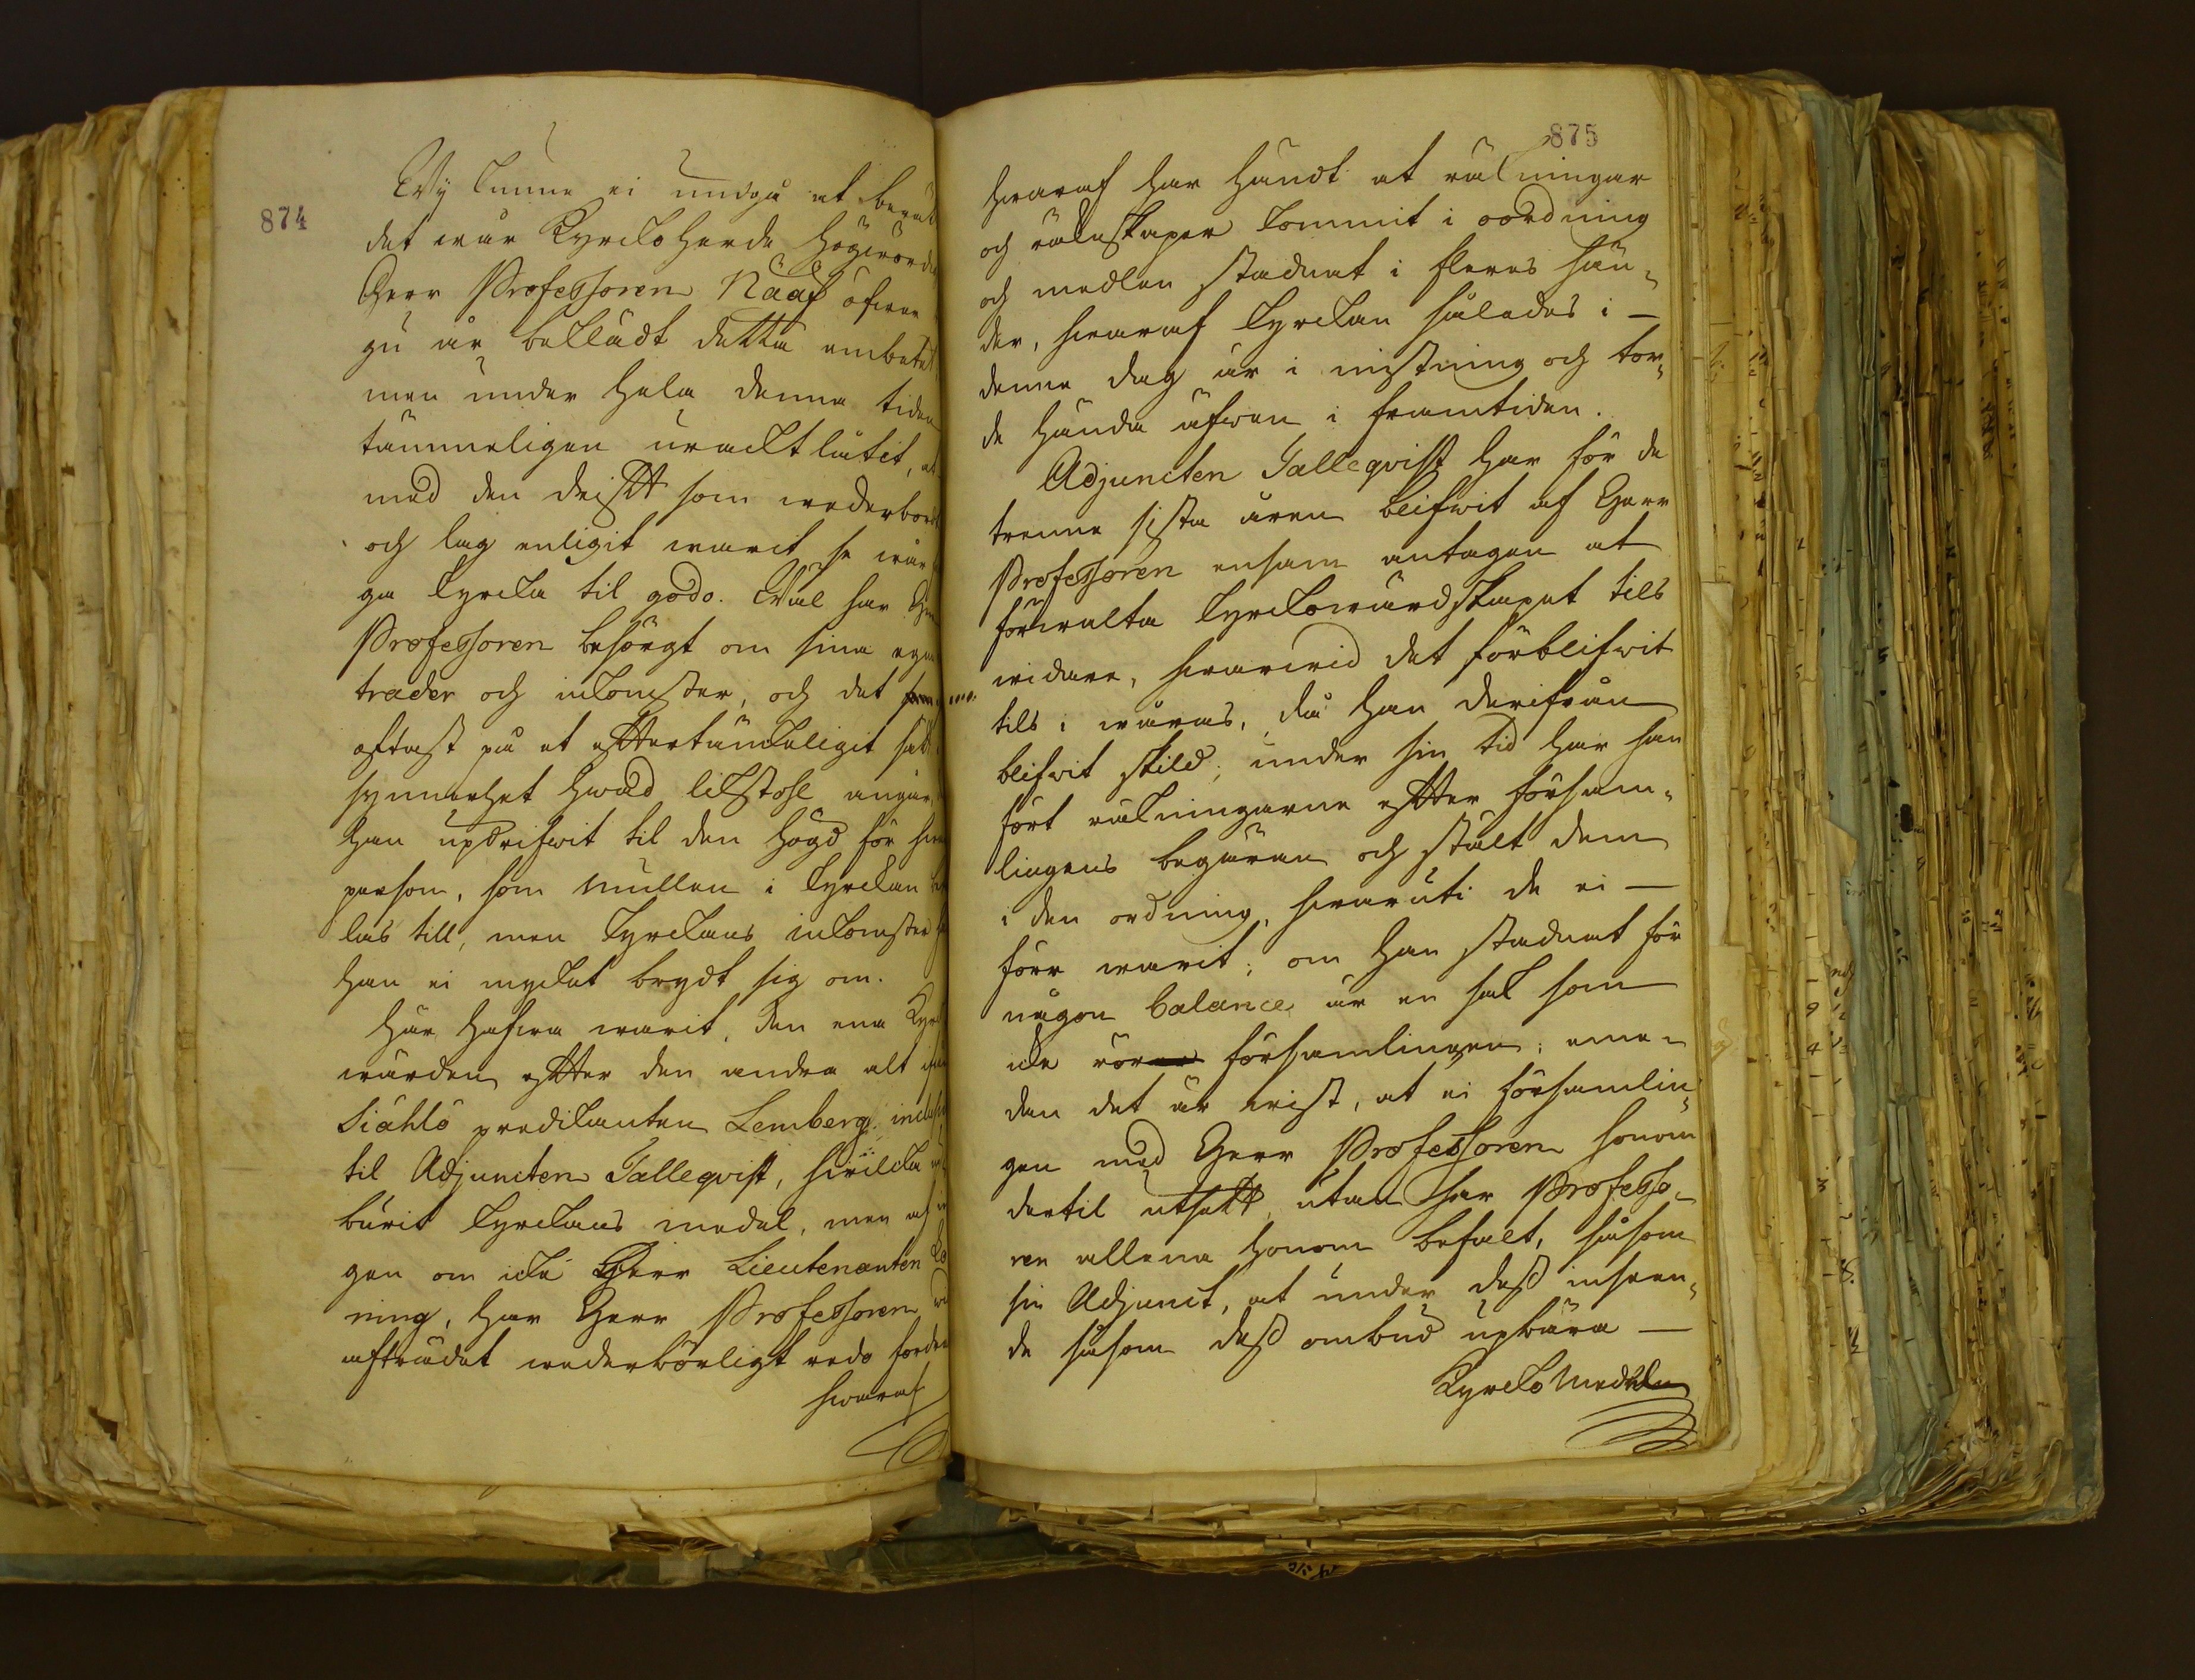 874
Wij kunne ei undgå at berät
det wår Kyrckoherde Högwörd
Herr Professoren Nääf öfwer
ju år beklädt detta embetet,
men under hela denna tiden
tämmeligen uracktlåtit, at
med den drifft som wederbort
och lag enligit warit se wår
ga kyrcka til godo. Wäl har Herr
Professoren besörgt om sina egna
träder och inkomster, och det
oftast på et eftertänckeligit sätt
synnerhet hwad likstohl angår,
han updrifwit til den högd för hwar
person, som mullen i kyrckan be
las till, men kyrckans inkomster
han ei mycket brydt sig om.
Här hafwa warit, den ena Kyrck
wärden efter den andra alt ifrån
Siählö predikanten Lemberg,
til Adjuncten Talleqvist, hwilcka
burit kyrckans medel, men af
gen om icke Herr Lieutenanten
ning, har Herr Professoren
affrådet wederbörligt redo fordra
hwaraf
875
hwaraf har händt at räkningar
och räkenskaper kommit i oordning
och medlen stadnat i fleres hän-
der, hwaraf kyrckan således i —
denne dag är i mistning och tor-
de hända äfwen i framtiden.
Adjuncten Talleqvist har för de
trenne sista åren blifwit af Herr
Professoren ensam antagen at
förwalta kyrckowärdskapet tils
widare, hwarwid det förblifwit
tils i wåras, då han derifrån
blifwit skild; under sin tid har han
fört räkningarne efter försam-
lingens begäran och stält dem
i den ordning, hwaruti de ei —
förr warit; om han stadnat för
någon balance är en sak som
icke rör församlingen; eme-
dan det är wist, at ei församlin-
gen med Herr Professoren honom
dertil utsatt, utan har Professo-
ren allena honom befalt, såsom
sin Adjunct, at under dess inseen-
de såsom dess ombud upbära —
Kyrcko Medlen